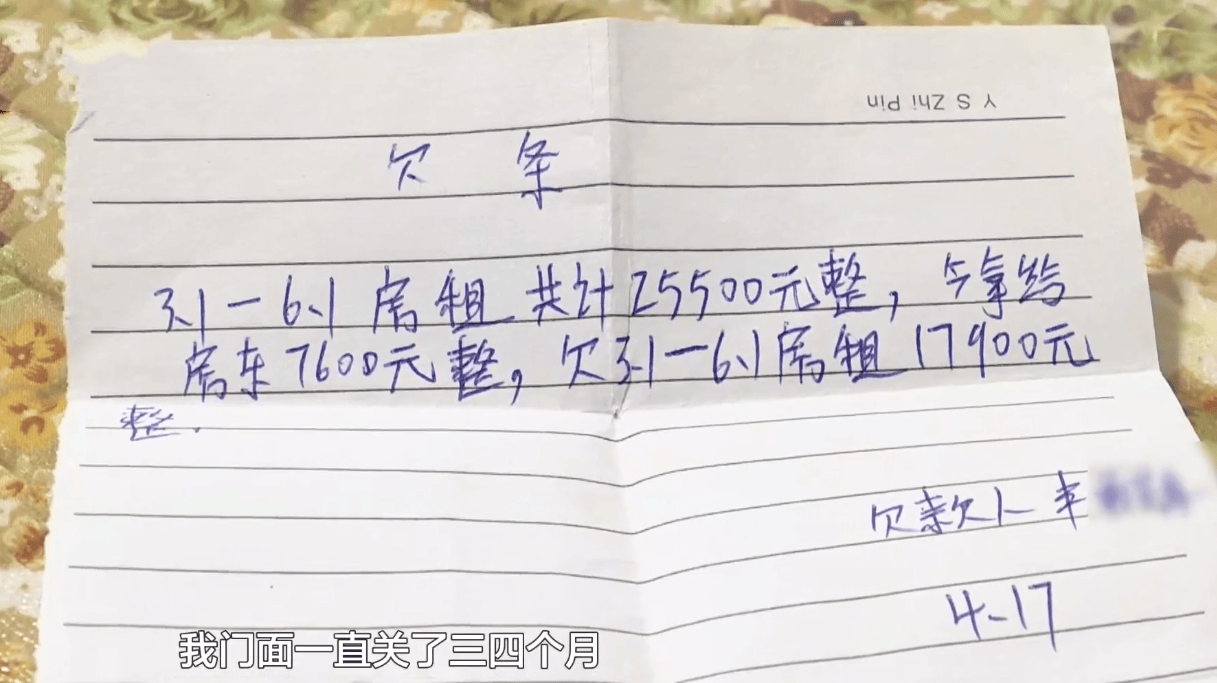 Y S Zhi Pin
欠 条
3.1一6.1房租共计25500元整，今拿给
房东7600元整，欠3.1一6.1房租17900元
整.
欠款人
4-17
我门面一直关了三四个月